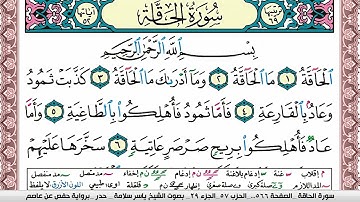 سُورَةُ الْحَاقَّةِ
بِسْمِ اللَّهِ الرَّحْمَٰنِ الرَّحِيمِ
الْحَاقَّةُ ١ مَا الْحَاقَّةُ ٢ وَمَا أَدْرَىٰكَ مَا الْحَاقَّةُ ٣ كَذَّبَتْ ثَمُودُ
وَعَادٌۢ بِالْقَارِعَةِ ٤ فَأَمَّا ثَمُودُ فَأُهْلِكُوا۟ بِالطَّاغِيَةِ ٥ وَأَمَّا
عَادٌ فَأُهْلِكُوا۟ بِرِيحٍ صَرْصَرٍ عَاتِيَةٍ ٦ سَخَّرَهَا عَلَيْهِمْ
سورة الحاقة . الصفحة ٥٦٦ . الحزب ٥٧ . الجزء ٢٩ . بصوت الشيخ ياسر سلامة . حدر . برواية حفص عن عاصم